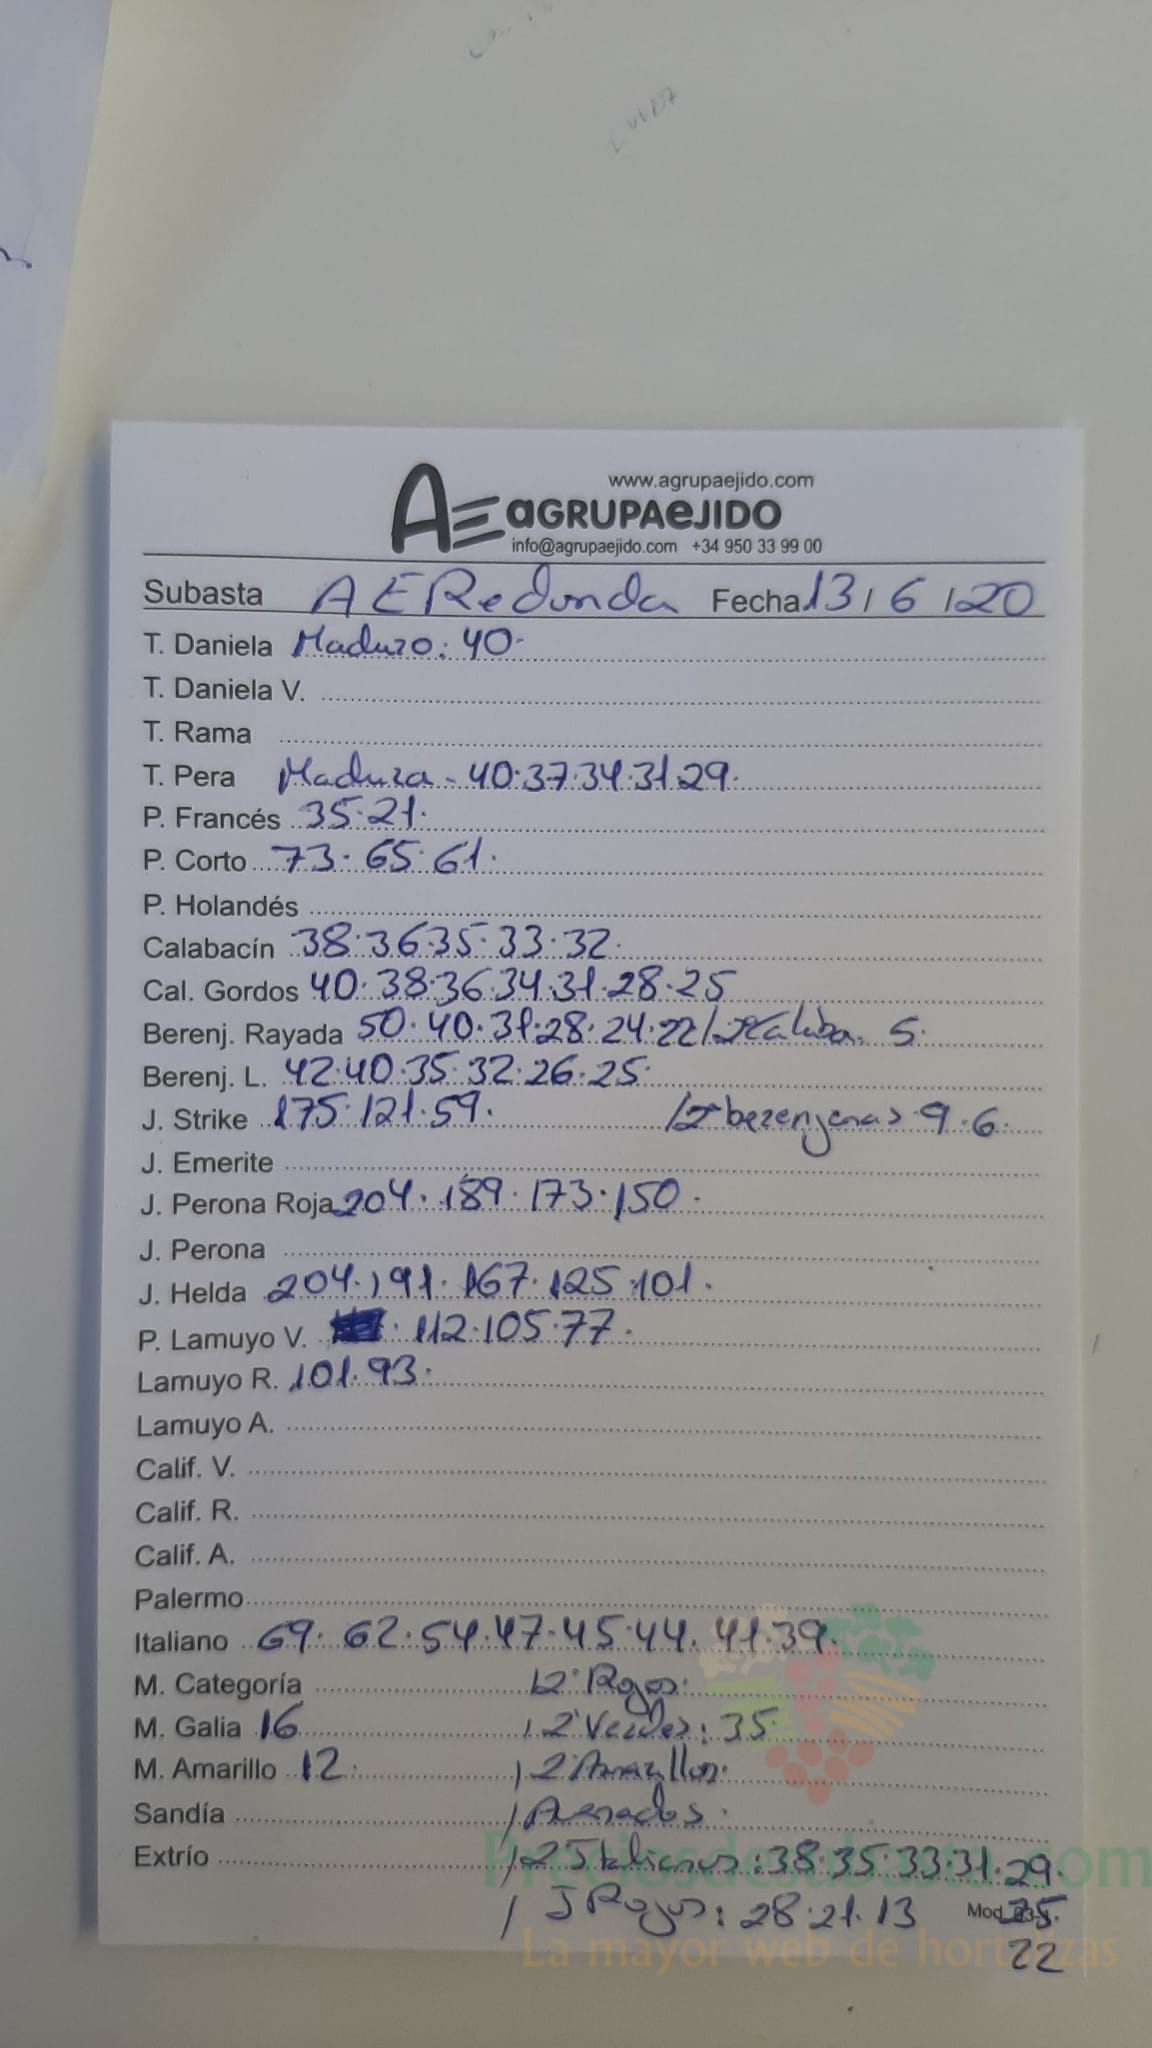 www.agrupaejido.com
AE aGRUPAeJIDO
info@agrupaejido.com +34 950 33 99 00
Subasta A E Redonda Fecha 13 / 6 / 20
T. Daniela Maduro: 40.
T. Daniela V.
T. Rama
T. Pera Madura - 40.37.34.31.29.
P. Francés 35.21.
P. Corto 73. 65. 61.
P. Holandés
Calabacín 38.36.35.33.32.
Cal. Gordos 40.38.36.34.31.28.25
Berenj. Rayada 50.40.31.28.24.22 / 5.
Berenj. L. 42.40.35.32.26.25.
J. Strike 175.121.59. / 2ª berenjenas 9.6.
J. Emerite
J. Perona Roja 204.189.173.150.
J. Perona
J. Helda 204.191.167.125.101.
P. Lamuyo V. 112.105.77.
Lamuyo R. 101.93.
Lamuyo A.
Calif. V.
Calif. R.
Calif. A.
Palermo
Italiano 69. 62.54.47.45.44.41.39.
M. Categoría / 2ª Rojos.
M. Galia 16 / 2ª Verdes: 35.
M. Amarillo 12. / 2 Amarillos.
Sandía / Asados.
Extrío / 2 Italianos: 38.35.33.31.29.
/ I Rojos: 28.21.13 Mod. 25.
22
Preciosdesubasta.com
La mayor web de hortalizas